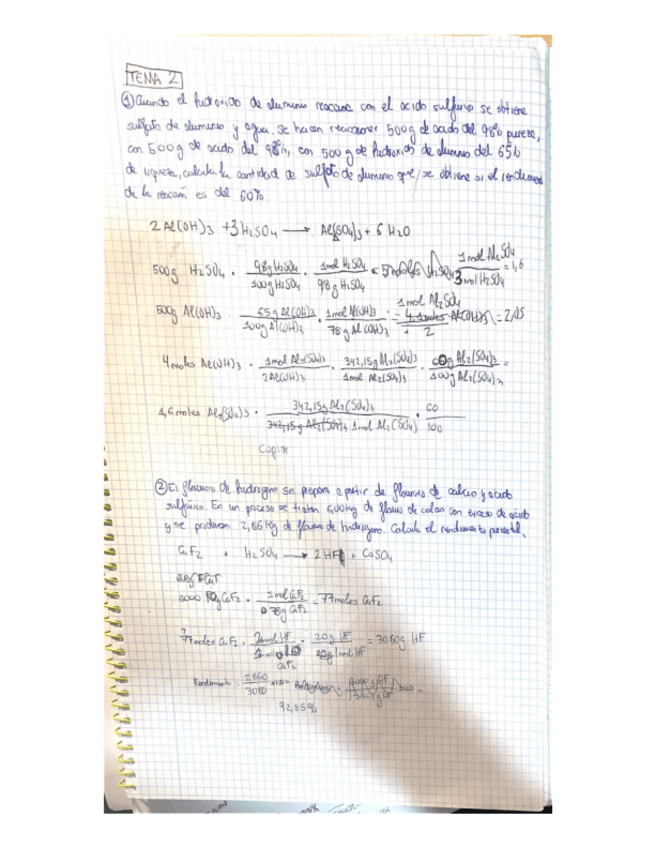 TEMA 2
① Cuando el hidroxido de aluminio reacciona con el acido sulfurico se obtiene
sulfato de aluminio y agua. Se hacen reaccionar 500g de acido del 98% pureza,
con 500g de acido del 98%, con 500 g de hidroxido de aluminio del 65%
de riqueza, calcula la cantidad de sulfato de aluminio que se obtiene si el rendimiento
de la reacción es del 60%.
2 Al(OH)3 + 3H2SO4 → Al2(SO4)3 + 6 H2O
500g H2SO4 · 98g H2SO4 / 100g H2SO4 · 1mol H2SO4 / 98g H2SO4 = 5 moles H2SO4 1mol Al2SO4 / 3 mol H2SO4 = 1,6
500g Al(OH)3 · 65g Al(OH)3 / 100g Al(OH)3 · 1mol Al(OH)3 / 78g Al(OH)3 = 1mol Al2SO4 / 2 = 2,05
4 moles Al(OH)3 · 1mol Al2(SO4)3 / 2Al(OH)3 · 342,15g Al2(SO4)3 / 1mol Al2(SO4)3 · 60g Al2(SO4)3 / 100g Al2(SO4)3 =
1,6 moles Al2(SO4)3 · 342,15g Al2(SO4)3 / 1mol Al2(SO4) · 60 / 100
Copiar
② El fluoruro de hidrogeno se prepara a partir de fluoruro de calcio y acido
sulfúrico. En un proceso se tratan 6,00kg de fluoruro de calcio con exceso de acido
y se producen 2,86 kg de fluoruro de hidrogeno. Calcula el rendimiento porcentual.
CaF2 + H2SO4 → 2 HF + CaSO4
6000 g CaF2 · 1mol CaF2 / 78g CaF2 = 77moles CaF2
77moles CaF2 · 2mol HF / CaF2 · 20g HF / 1mol HF = 3080g HF
Rendimiento = 2860 / 3080 · 100 =
92,85%